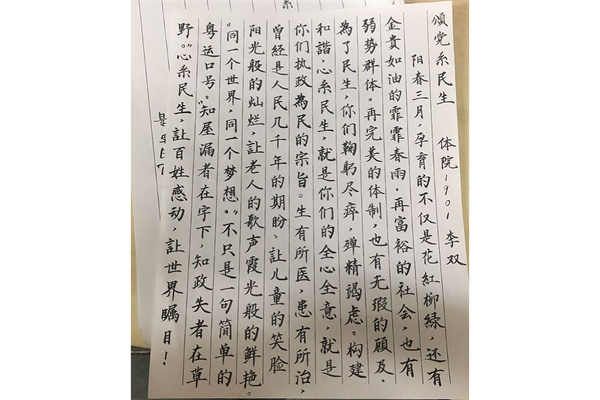 頌党系民生 体院1901李双
阳春三月，孕育的不仅是花紅柳緑，还有
金貴如油的霏霏春雨．再富裕的社会，也有
弱势群体。再完美的体制，也有无瑕的顾及．
為了民生，你们鞠躬尽瘁，殚精竭虑。构建
和諧，心系民生，就是你们的全心全意，就是
你们执政為民的宗旨。生有所医，患有所治，
曾经是人民几千年的期盼。让儿童的笑脸
阳光般的灿烂，让老人的歌声霞光般的鲜艳。
“同一个世界，同一个梦想。”不只是一句简单的
粤运口号。“知屋漏者在宇下，知政失者在草
野。”心系民生，让百姓感动，让世界瞩目！